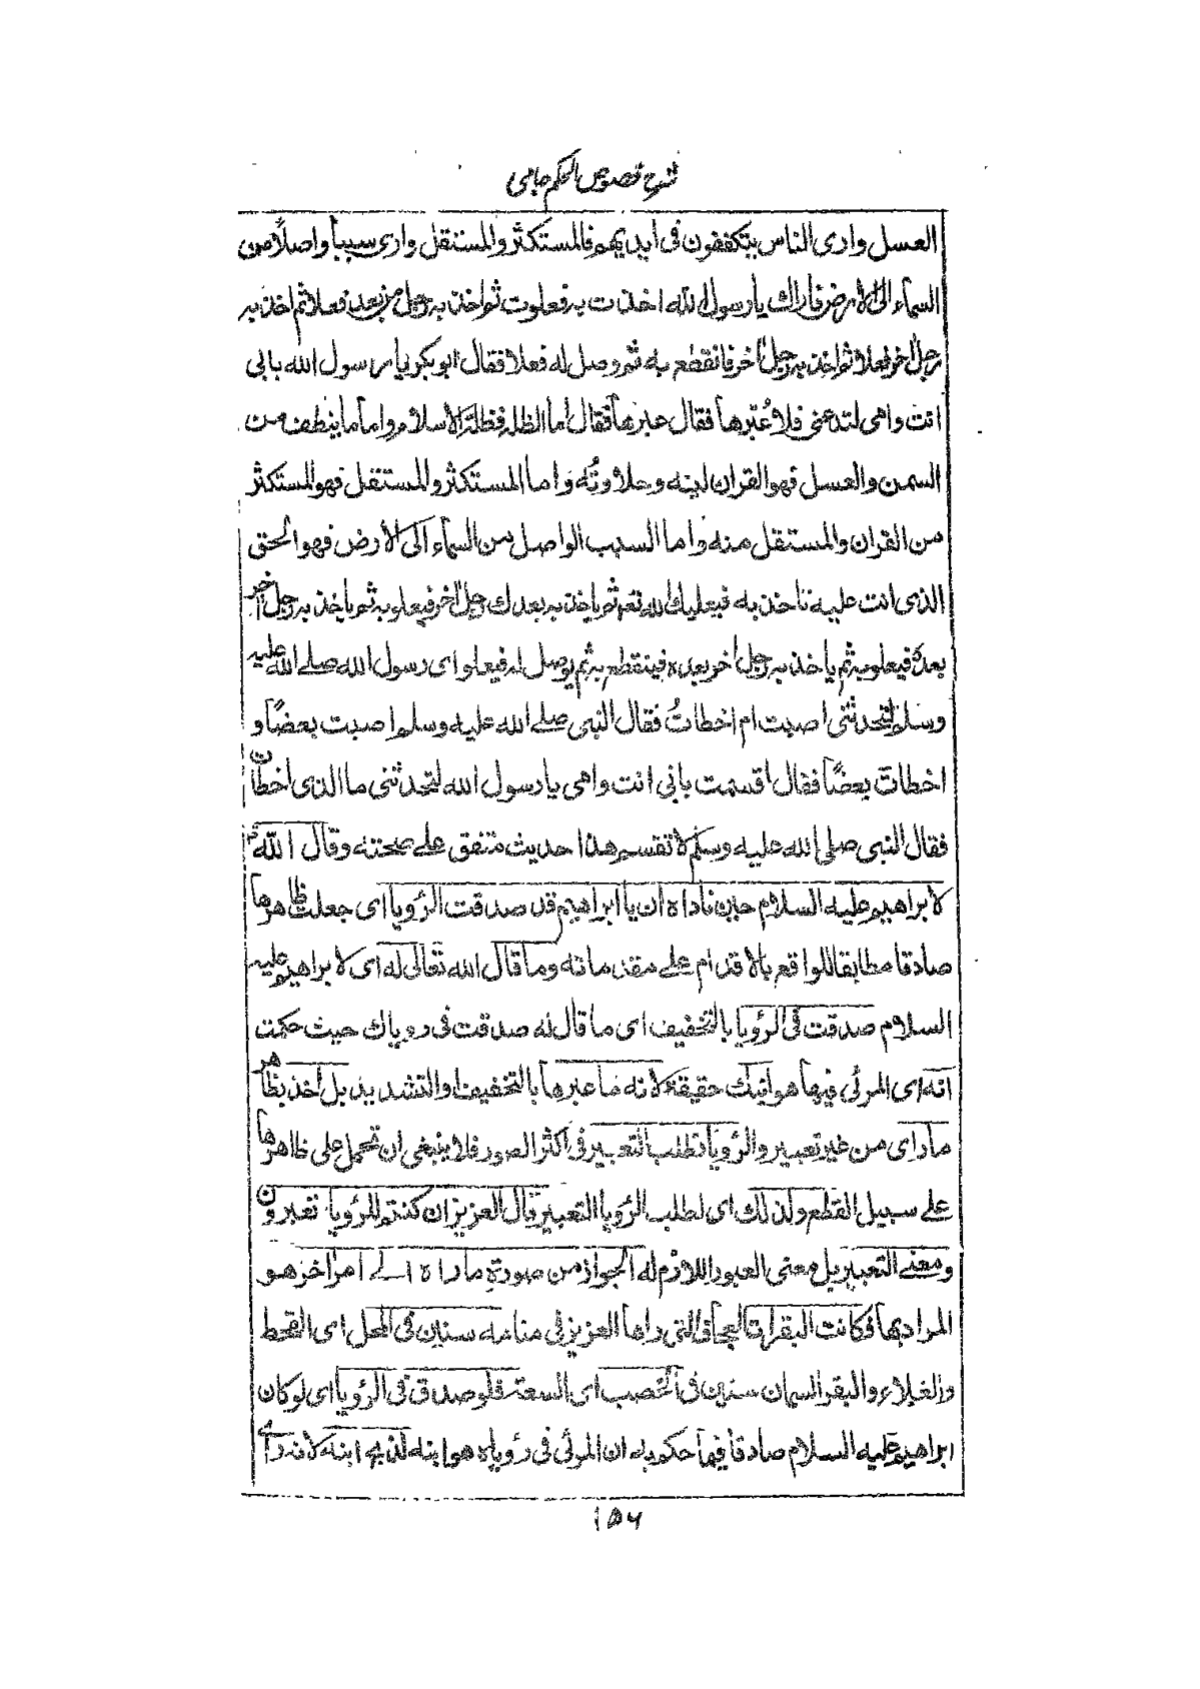 شرح فصوص الحكم جامى
العسل وارى الناس يتكففون فى ايديهم فالمستكثر والمستقل وارى سببا واصلا من
السماء الى الارض فاراك يا رسول الله اخذت به فعلوت ثم اخذ به رجل من بعدك فعلا ثم اخذ به
رجل اخر فعلا ثم اخذ به رجل اخر فانقطع به ثم وصل له فعلا فقال ابو بكر يا رسول الله بابى
انت وامى لتدعنى فلاعبّرها فقال عبرها فقال اما الظلة فظلة الاسلام واما ما ينطف من
السمن والعسل فهو القران لينه وحلاوته واما المستكثر والمستقل فهو المستكثر
من القران والمستقل منه واما السبب الواصل من السماء الى الارض فهو الحق
الذى انت عليه تاخذ به فيعليك الله تعم ثم ياخذ به بعدك رجل اخر فيعلو به ثم ياخذ به رجل اخر
بعده فيعلو به ثم ياخذ به رجل اخر بعده فينقطع به ثم يوصل له فيعلو اى رسول الله صلے الله عليه
وسلم لتحدثنى اصبت ام اخطات فقال النبى صلے الله عليه وسلم اصبت بعضًا و
اخطات بعضًا فقال اقسمت بابى انت وامى يا رسول الله لتحدثنى ما الذى اخطات
فقال النبى صلى الله عليه وسلم لا تقسم هذا حديث متفق علے صحته وقال الله تع
لابراهيم عليه السلام حين ناداه ان يا ابراهيم قد صدقت الرؤيا اى جعلت ظاهرها
صادقا مطابقا للواقع بالاقدام علے مقدماته وما قال الله تعالى له اى لابراهيم عليه
السلام صدقت فى الرؤيا بالتخفيف اى ما قال له صدقت فى روياك حيث حكمت
انه اى المرئى فيها هو ابنك حقيقة لانه ما عبرها بالتخفيف او التشديد بل اخذ بظاهر
ما راى من غير تعبير والرؤيا تطلب التعبير فى اكثر الصور فلا ينبغى ان تحمل على ظاهرها
على سبيل القطع ولذلك اى لطلب الرؤيا التعبير قال العزيز ان كنتم للرؤيا تعبرون
ومعنے التعبير بل معنى العبور اللازم له الجواز من صورة ما راه الے امر اخر هو
المراد بها فكانت البقرات العجاف التى راها العزيز فى منامه سنين فى المحل اى القحط
والغلاء والبقر السمان سنين فى الخصب اى السعة فلو صدق فى الرؤيا اى لو كان
ابراهيم عليه السلام صادقا فيما حكم به ان المرئى فى رؤياه هو ابنه لذبح ابنه لانه راى
۱۵۶